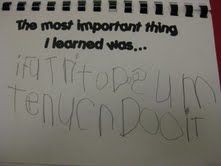 The most important thing
I learned was...
ifUTritoDoeum
tenucnDooit